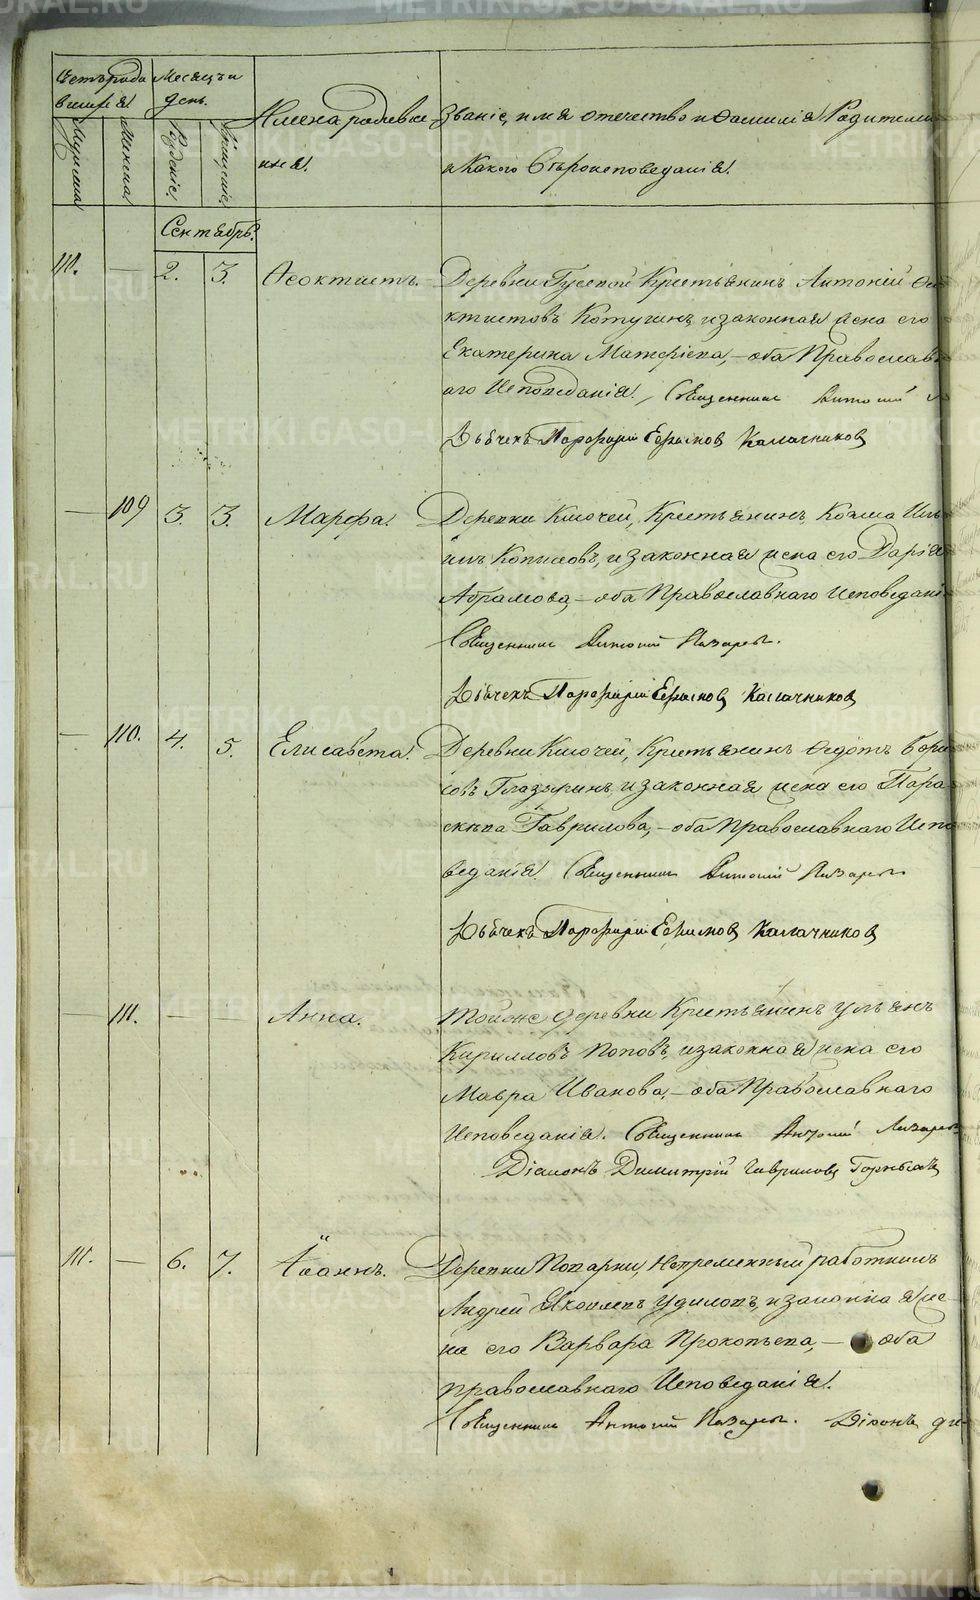 METRIKI.GASO-URAL.RU
Мѣсяцъ и
день.
Имена родивших-
ихся.
Званіе, имя отечество и фамилія Родителей
и Какого Вѣроисповеданія.
Мужеска
Женска
Рожденіе.
Крещеніе.
Сентябрь.
111. — 2. 3. Ѳеоктистъ. Деревни Гусевой Крестьянинъ Антоній Ѳео-
ктистовъ Котугинъ, и законная жена его
Екатерина Матфіева, — оба Православн-
аго Исповеданія. Священникъ Антоній
Дьячекъ Парфирій Ефимовъ Калачниковъ
— 109 3. 3. Марфа. Деревни Ключей, Крестьянинъ, Козма Иль-
инъ Копыловъ, и законная жена его Дарія
Абрамова, — оба Православнаго Исповедані
Священникъ Антоній Лазаревъ.
Дьячекъ Парфирій Ефимовъ Калачниковъ
— 110. 4. 5. Елисавета. Деревни Ключей, Крестьянинъ Ѳедотъ Бори-
совъ Глазуринъ, и законная жена его Пара-
скева Гаврилова, — оба Православнаго Испо-
веданія. Священникъ Антоній Лазаревъ
Дьячекъ Парфирій Ефимовъ Калачниковъ
111. — — Анна. Тойже деревни Крестьянинъ Ульянъ
Кирилловъ Поповъ, и законная жена его
Мавра Иванова, — оба Православнаго
Исповеданія. Священникъ Антоній Лазаревъ
Діаконъ Димитрій Гавриловъ
111. — 6. 7. Іоаннъ. Деревни Поварни, Непременный работникъ
Андрей Яковлевъ Удиловъ, и законная же-
на его Варвара Прокопьева, — оба
православнаго Исповеданія.
Священникъ Антоній Лазаревъ. Діконъ Ди-